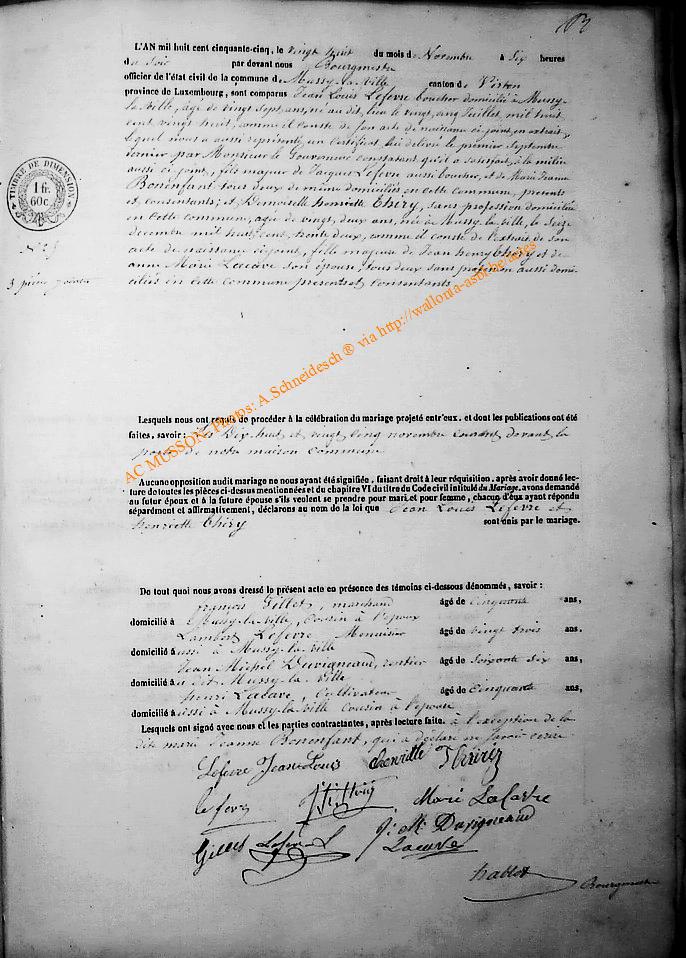 L'AN mil huit cent cinquante-cinq, le vingt huit du mois de Novembre à Six heures
du soir par devant nous Bourgmestre
officier de l'état civil de la commune de Mussy-la-Ville canton de Virton
province de Luxembourg, sont comparus Jean Louis Lefevre boucher domicilié à Mussy-
la-Ville, âgé de vingt sept ans, né au dit lieu le vingt cinq Juillet, mil huit
cent vingt huit, comme il conste de son acte de naissance ci-joint, en extrait,
lequel nous a aussi représenté un Certificat lui délivré le premier Septembre
dernier par Monsieur le Gouverneur constatant qu'il a satisfait à la milice
aussi ci joint, fils majeur de Jacques Lefevre aussi boucher, et de Marie Jeanne
Boninfant tous deux de même domiciliés en cette commune, présents
et consentants; et Demoiselle henriette Thiry, sans profession domiciliée
en cette commune, agée de vingt deux ans, née à Mussy-la-Ville, le Seize
décembre mil huit cent trente deux, comme il conste de l'extrait de son
acte de naissance ci joint, fille majeure de Jean henry Thiry et de
anne Marie Lacave son épouse, tous deux sans profession aussi domi-
ciliés en cette commune présents et consentants
TIMBRE DE DIMENSION
1 fr.
60 c.
3 pièces
Lesquels nous ont requis de procéder à la célébration du mariage projeté entr'eux, et dont les publications ont été
faites, savoir: Les Dix huit et vingt cinq novembre Courant devant la
porte de notre maison commune
Aucune opposition audit mariage ne nous ayant été signifiée, faisant droit à leur réquisition, après avoir donné lec-
ture de toutes les pièces ci-dessus mentionnées et du chapitre VI du titre du Code civil intitulé du Mariage, avons demandé
au futur époux et à la future épouse s'ils veulent se prendre pour mari et pour femme, chacun d'eux ayant répondu
séparément et affirmativement, déclarons au nom de la loi que Jean Louis Lefevre et
henriette Thiry sont unis par le mariage.
De tout quoi nous avons dressé le présent acte en présence des témoins ci-dessous dénommés, savoir:
françois Gillet, marchand âgé de cinquante ans,
domicilié à Mussy-la-ville, Cousin à l'epoux
Lambert Lefevre, Menuisier âgé de vingt trois ans,
domicilié aussi à Mussy-la-Ville
Jean Michel Duvigneaud, rentier âgé de soixante dix ans,
domicilié au dit Mussy-la Ville
henri Lacave, Cultivateur âgé de Cinquante ans,
domicilié aussi à Mussy-la-Ville Cousin à l'epouse
Lesquels ont signé avec nous et les parties contractantes, après lecture faite. à l'exception de la
dite marie Jeanne Boninfant, qui a déclaré ne savoir ecrire
Lefevre Jean-Louis henriette Thiriy
lefevre Marie Lacave
Gillet Lefevre L J. M. Duvigneaud
Lacave
hablot Bourgmestre
AC MUSSON: Photos: A.Schneidesch ® via http://wallonia-asbl.be/actes